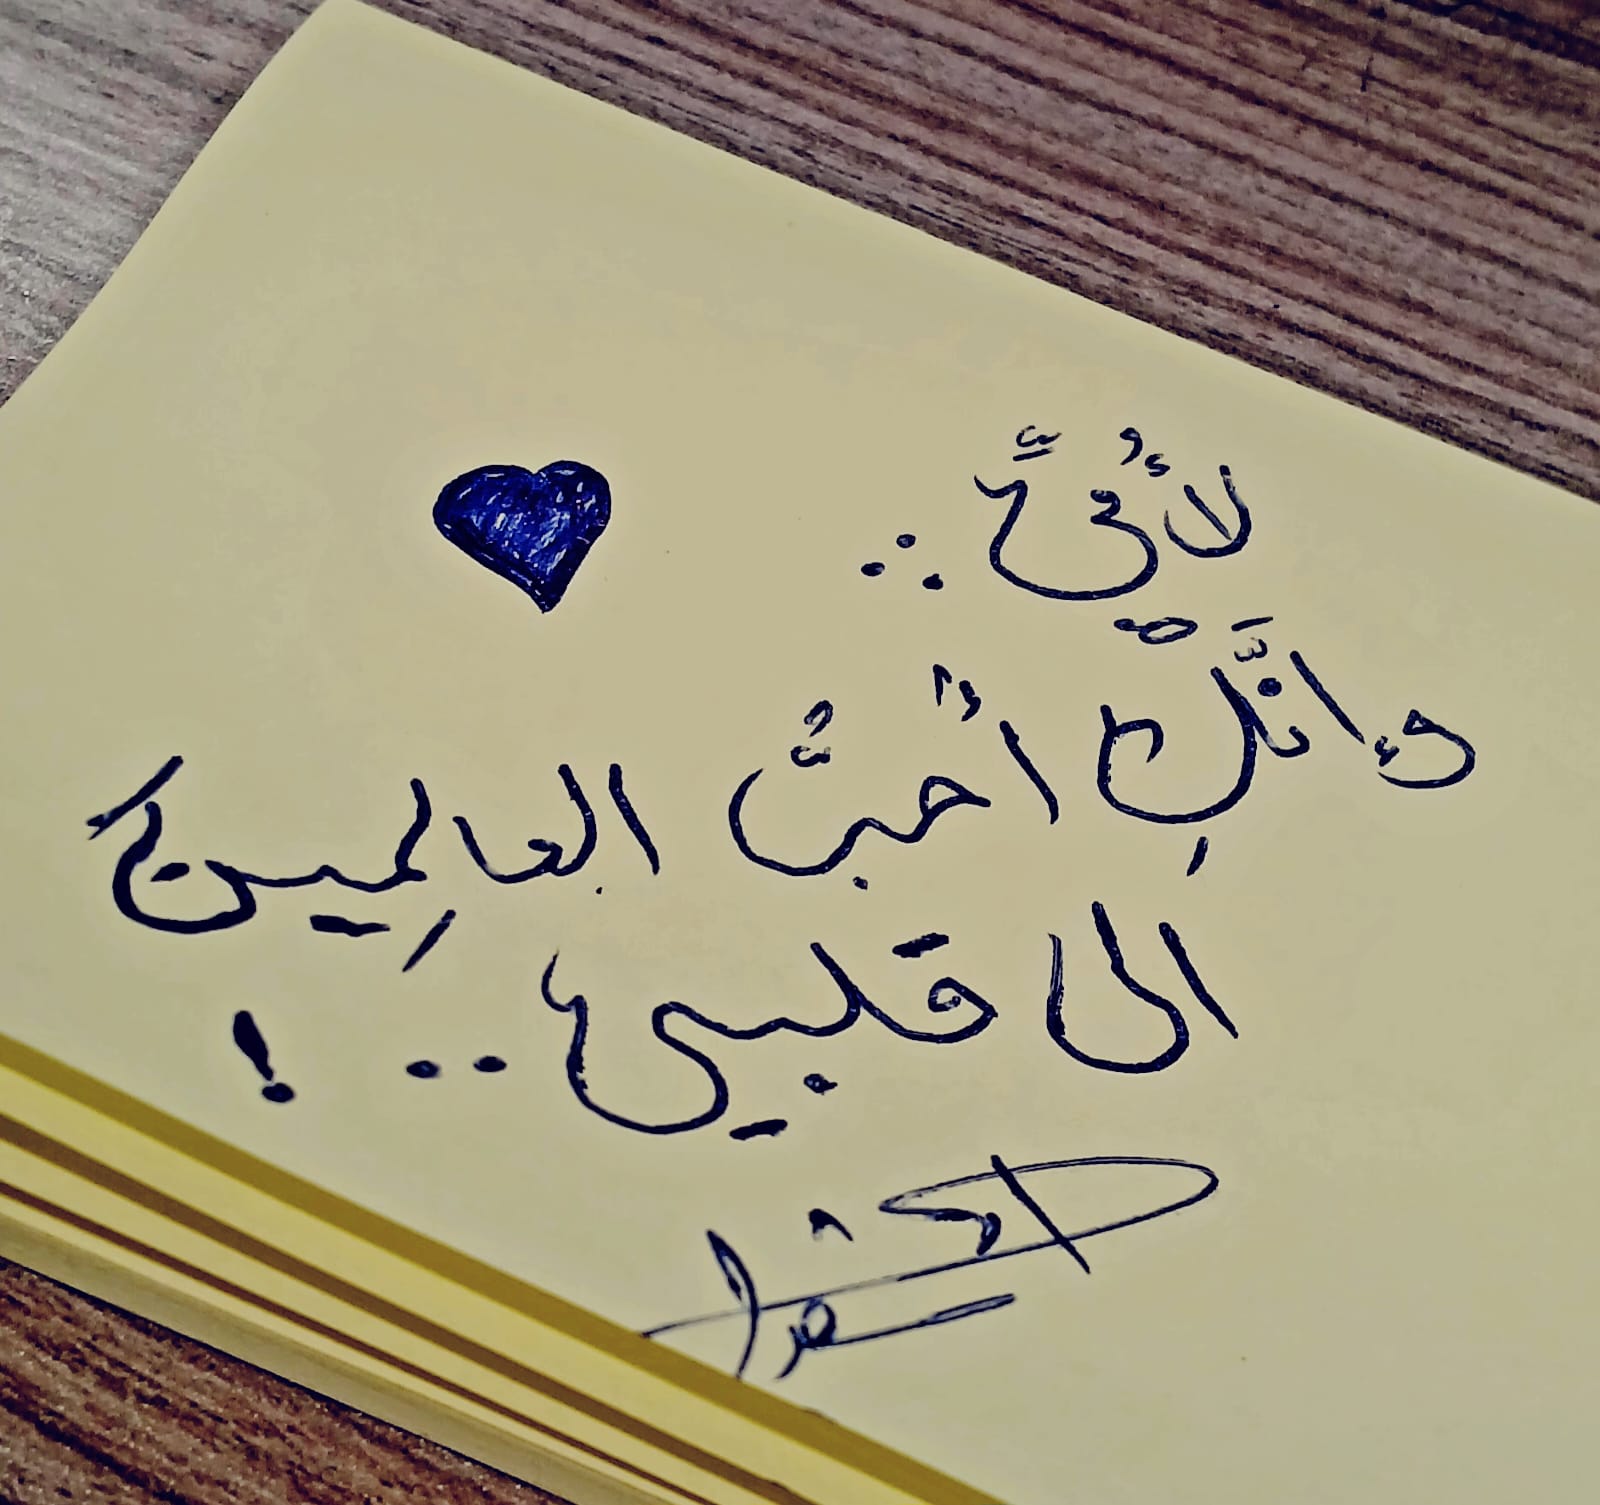 لأُمّيَ ∴
وإنَّكِ أحَبُّ العالمِين
الى قَلبي .. !